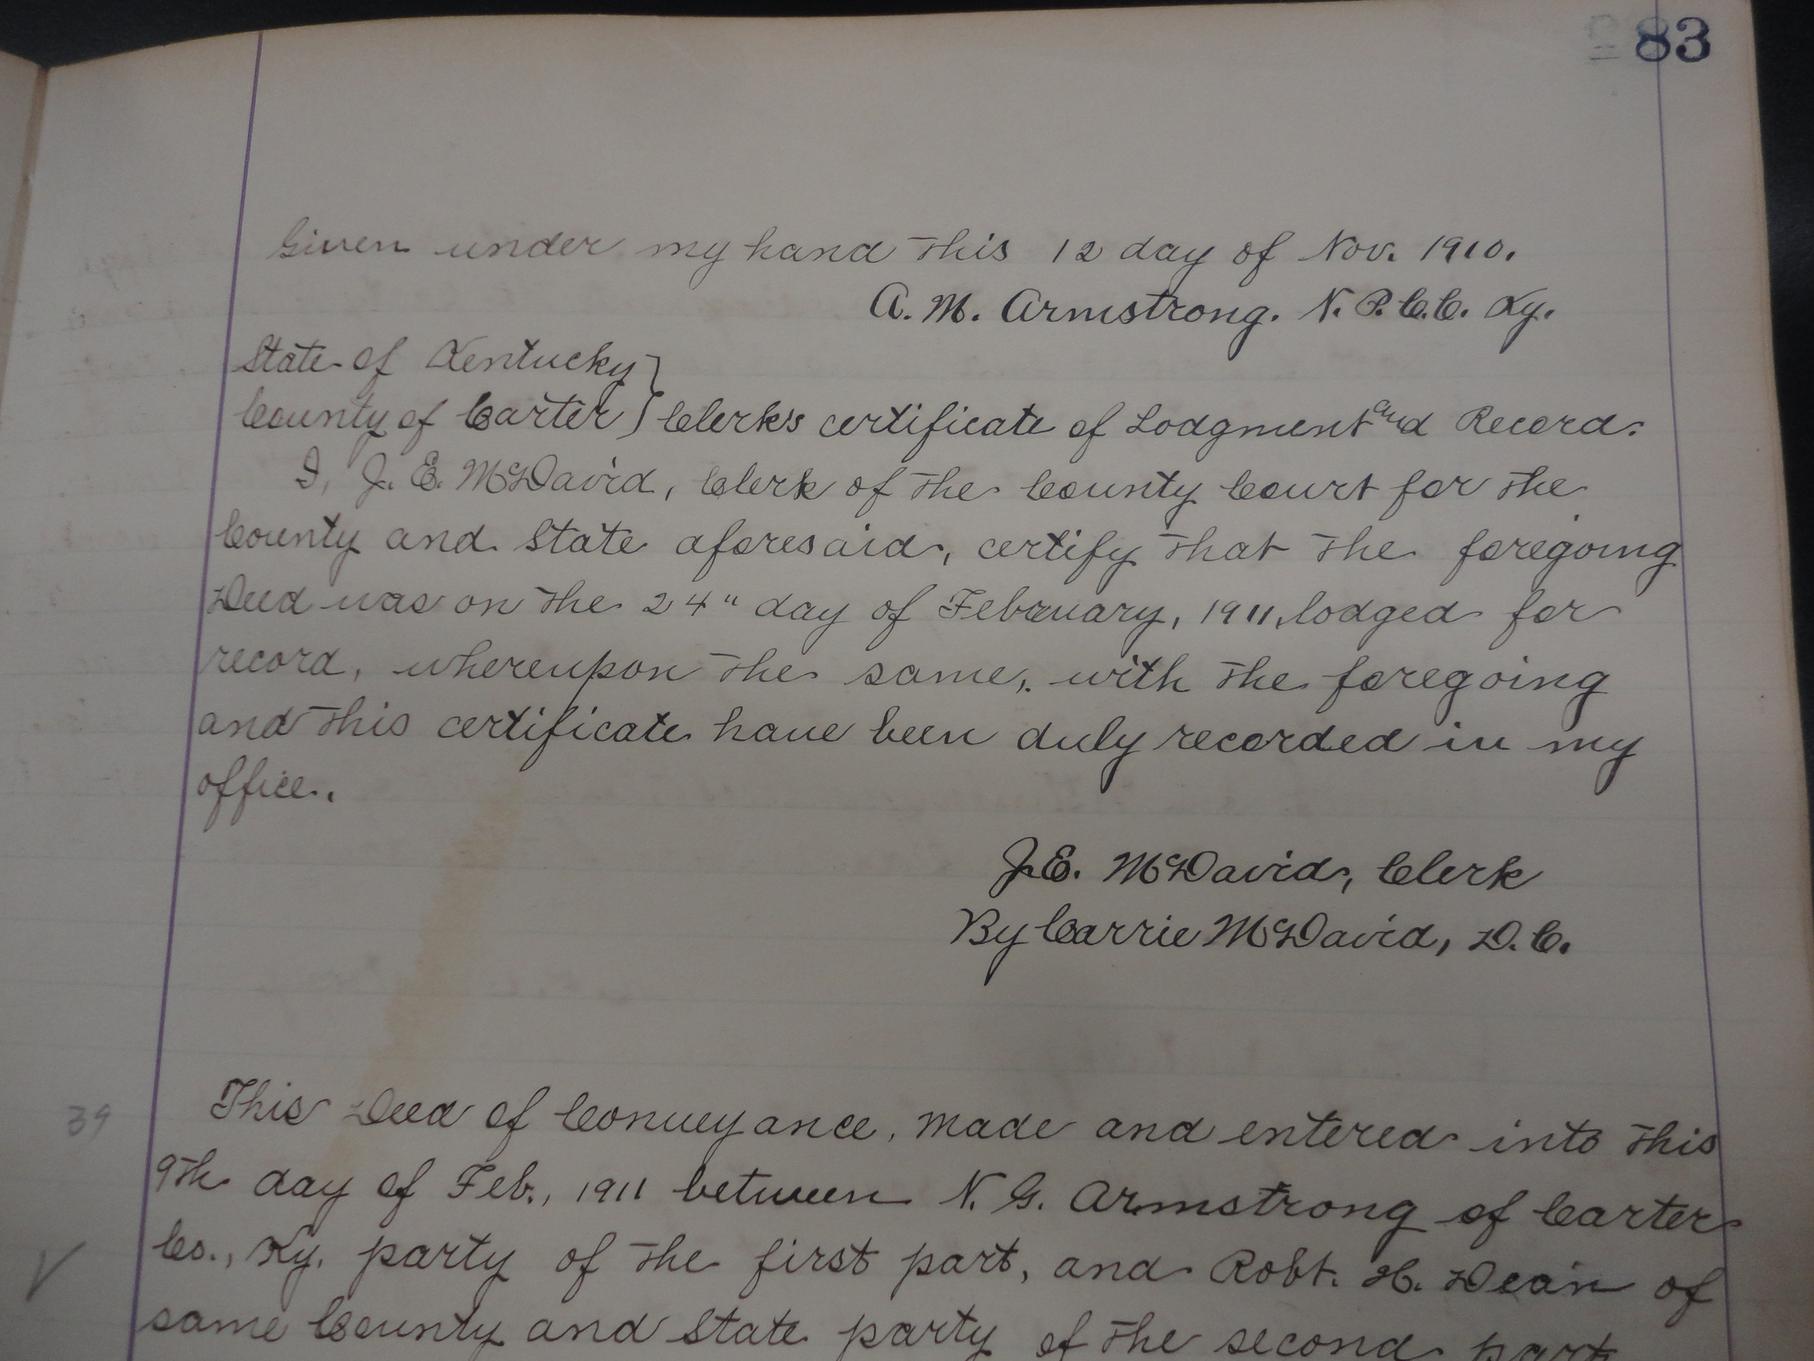 83
Given under my hand this 12 day of Nov. 1910.
A. M. Armstrong. N. P. C. C. Ky.
State of Kentucky
County of Carter } Clerk's certificate of Lodgment and Record.
I, J. E. McDavid, Clerk of the County Court for the
County and State aforesaid, certify that the foregoing
Deed was on the 24" day of February, 1911, lodged for
record, whereupon the same, with the foregoing
and this certificate have been duly recorded in my
office.
J. E. McDavid, Clerk
By Carrie McDavid, D. C.
39
This Deed of Conveyance, made and entered into this
9th day of Feb., 1911 between N. G. Armstrong of Carter
Co., Ky. party of the first part, and Robt. H. Dean of
same County and State party of the second part